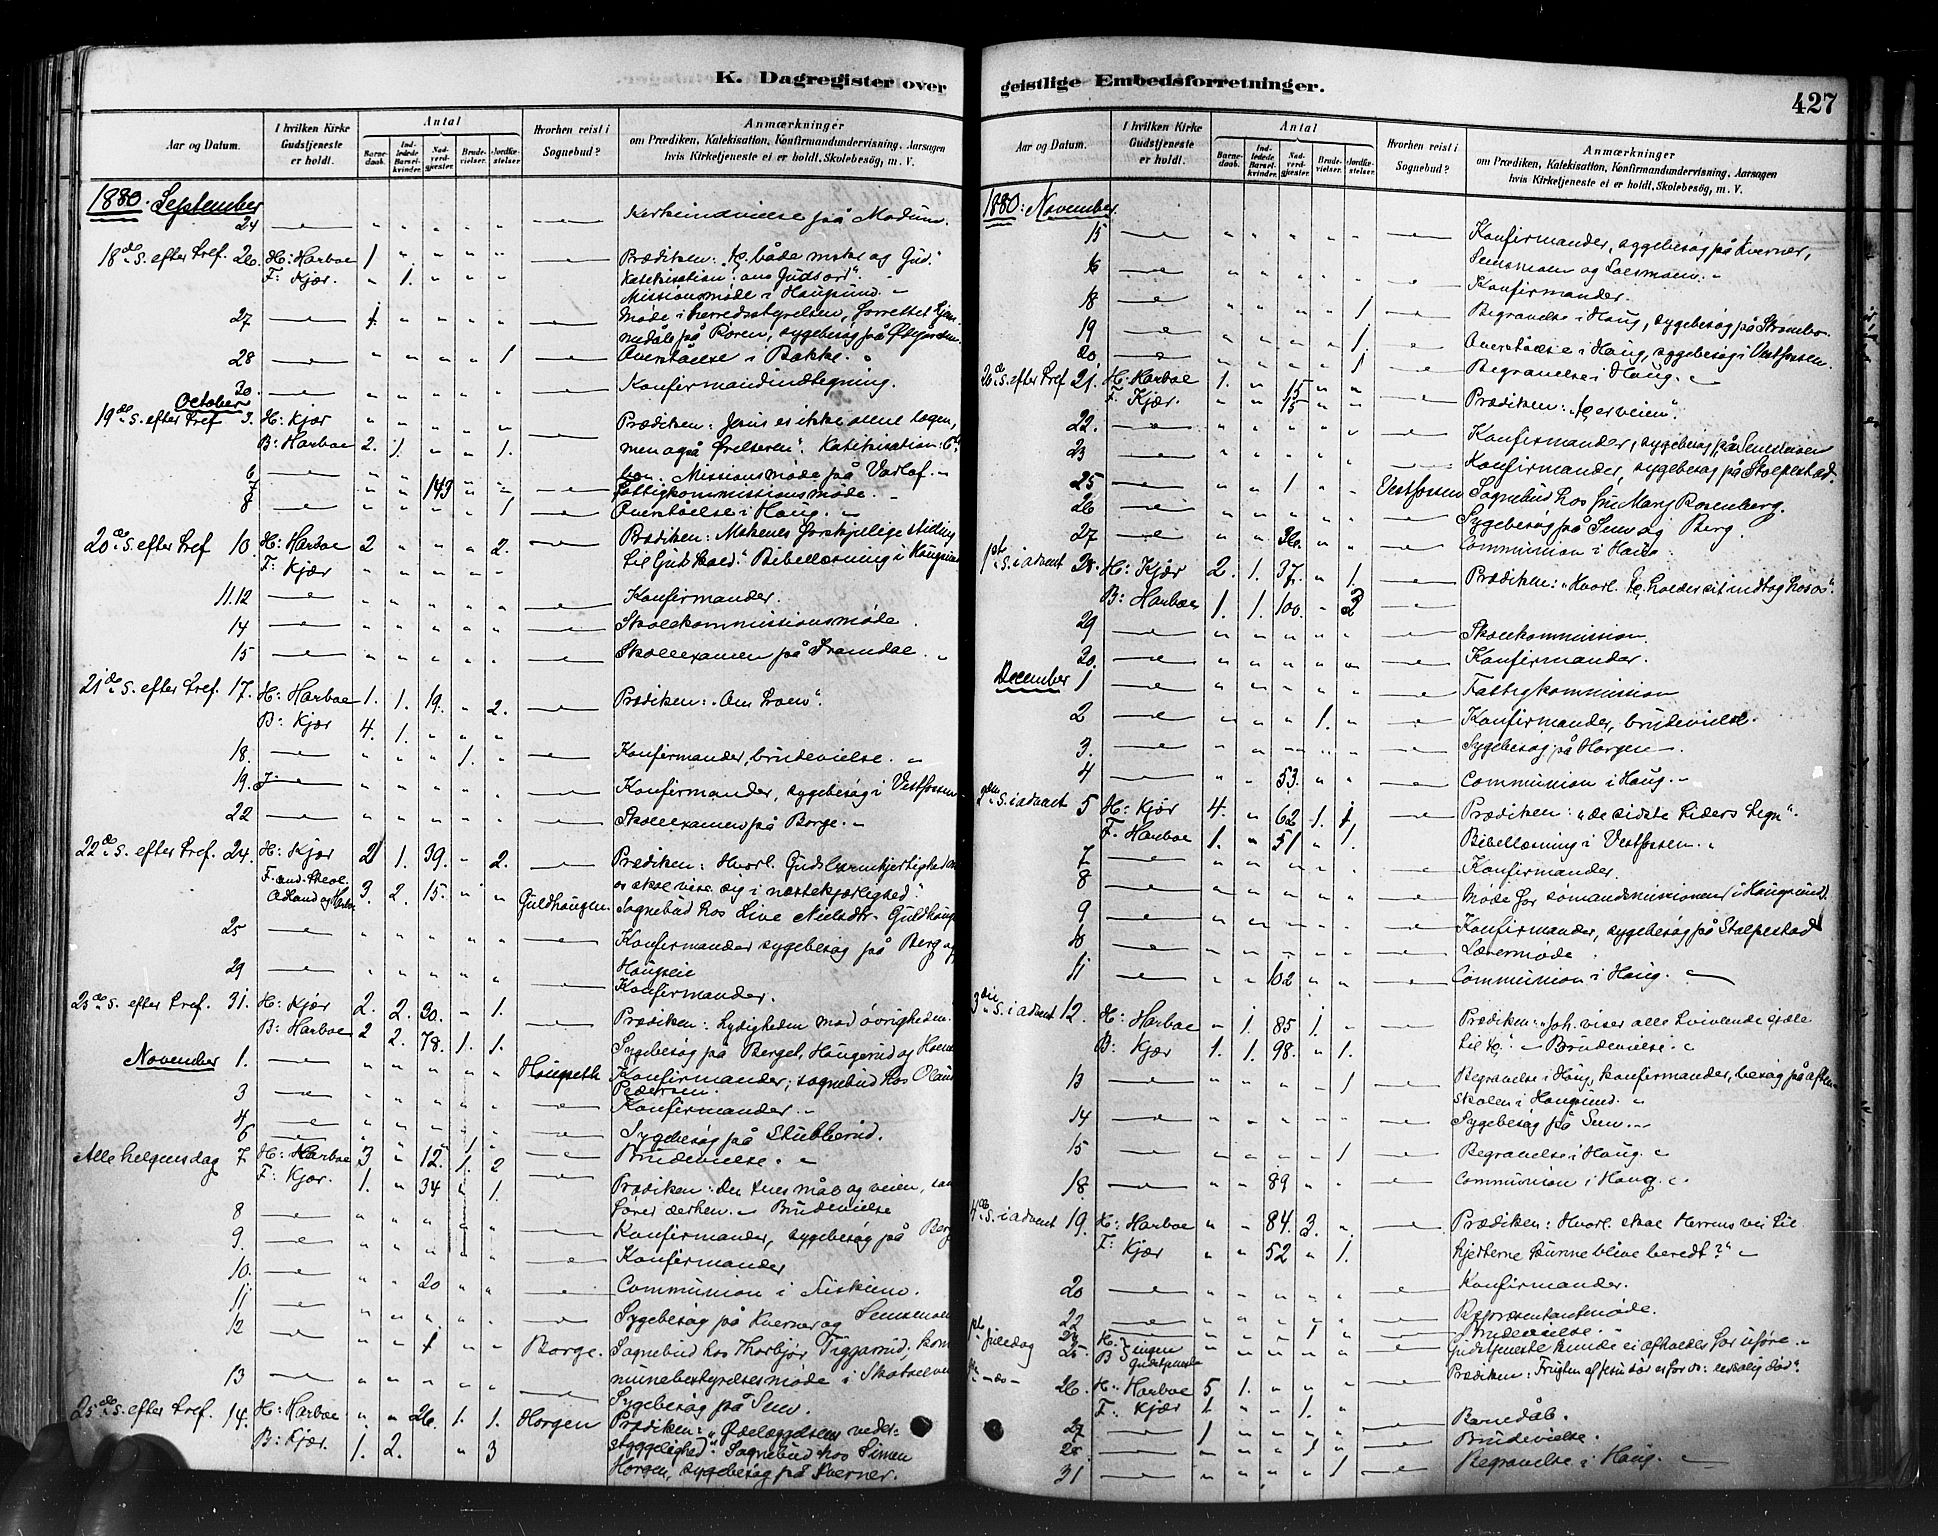 K. Dagregister over
Aar og Datum.
I hvilken Kirke Gudstjeneste er holdt.
Antal
Barnedaab.
Indledede Barselkvinder.
Nadverdgjæster.
Brudevielser.
Jordfæstelser.
Hvorhen reist i Sognebud?
Anmærkninger
om Prædiken, Katekisation, Konfirmandundervisning, Aarsagen
hvis Kirketjeneste ei er holdt, Skolebesøg, m. V.
1880. September
24 Kirkeindvielse på Modum.
18de S. efter Tref. 26. H: Harboe 1. Prædiken: både mstr og Gud."
F: Kjær. 1. Katekisation: om Guds ord".
Missionsmøde i Haugsund.
27 1. Møde i herredsstyrelsen, forrettet hjem-
medåb på Roren, sygebesøg på
28 1 Overståelse i Bakke.
30. Konfirmandindtegning.
October
19de S. efter Tref 3. H: Kjær Prædiken: Jesus er ikke alene
B: Harboe 2. 1. 1. men også Katekisation: 6te
6 bøn. Missionsmøde på Varlo f.
7 149 Fattigkommissionsmøde.
8 1 Overståelse i Haug.
20de S. efter Tref 10. H: Harboe 2 2. Prædiken: forskjellige stilling
F: Kjær til Guds Bibellæsning i Haugsund
11.12 Konfirmander.
14 Skolekommissionsmøde.
15 Skoleexamen på Framdal.
21de S. efter Tref. 17. H: Harboe 1. 1. 19. 2. Prædiken: "Om troen".
B: Kjær 4. 1.
18. 1. Konfirmander, brudevielse.
19. Konfirmander, sygebesøg i Vestfossen
22 Skoleexamen på Borge.
22de S. efter Tref. 24. H: Kjær 2 1. 39. 2. Prædiken: Hvorl. Guds barmhjertighed mod
F: cand. theol. os skal vise sig i næstekjærlighed".
Harboe 3. 2. 15. Guldhaugen Sognebud hos Live Nielsdtr. Guldhaug
25 Konfirmander sygebesøg på Berg og
Haugseie
29 Konfirmander.
23de S. efter Tref. 31. H: Kjær 2. 2. 30. 1. Prædiken: Lydigheden mod øvrigheden.
B: Harboe 2 2. 78. 1. 1. Sygebesøg på Berget, Haugerud og Hoen
November 1. Haugseth Konfirmander; sognebud hos Olaus
Pedersen.
3 Konfirmander.
4 Sygebesøg på Stubberud.
6 1 Brudevielse.
Alle helgensdag 7. H: Harboe 3 12. 1. 2 Prædiken: Den
F: Kjær. 1. 34 1. fører derhen. Brudevielse
8 Konfirmander, sygebesøg på Berg
9. Konfirmander
10. 20 Communion i Fiskum.
11 Sygebesøg på Kverner og Semsmoen
12 1 Borge. Sognebud hos Thorbjør kom-
munebestyrelsesmøde i Skotselven
13 Sygebesøg på Sem.
25de S. efter Tref. 14. H: Harboe 26. 1. 1. Horgen Prædiken: "Ødelæggelsens veder-
B: Kjær. 1. 2. 3 styggelighed". Sognebud hos Simen
Horgen, sygebesøg på Kverner.
geistlige Embedsforretninger.
427
Aar og Datum.
I hvilken Kirke Gudstjeneste er holdt.
Antal
Barnedaab.
Indledede Barselkvinder.
Nadverdgjæster.
Brudevielser.
Jordfæstelser.
Hvorhen reist i Sognebud?
Anmærkninger
om Prædiken, Katekisation, Konfirmandundervisning, Aarsagen
hvis Kirketjeneste ei er holdt, Skolebesøg, m. V.
1880. November
15 Konfirmander, sygebesøg på Kverner,
Semsmoen og Loesmoen.
16 Konfirmander.
18 1 Begravelse i Haug, sygebesøg på Strømbo.
19 1. Overståelse i Haug, sygebesøg i Vestfossen.
20 1 Begravelse i Haug.
26de S. efter Tref 21. H: Harboe 1. 15 Prædiken: er veien".
F: Kjær. 15
22. Konfirmander, sygebesøg på Semsmoen
23 Konfirmander, sygebesøg på Stolpestad.
25 1 Vestfossen Sognebud hos fru Mary Rosenberg.
26 Sygebesøg på Sem og Berg.
27 36. Communion i Haug.
1ste S. i advent 28 H: Kjær 2. 1. 37. 1. Prædiken: "Hvorl. holder sit indtog hos os".
B: Harboe 1. 1. 100. 2
29 Skolekommission.
30. Konfirmander.
December 1 Fattigkommission
2 1. Konfirmander, brudevielse.
3. Sygebesøg på Horgen
4 53. Communion i Haug.
2den S. i advent 5 H: Kjær 4. 62 1. 1 Prædiken: "de sidste tiders tegn".
F. Harboe 1. 51 1. Bibellæsning i Vestfossen.
7 Konfirmander.
8 Møde for sømandsmissionen (i Haugsund).
9 Konfirmander, sygebesøg på Stolpestad
10 Lærermøde
11 102 Communion i Haug.
3die S. i advent 12. H: Harboe 1. 85 1. Prædiken: "Joh. viser alle tvivlende sjæle
B: Kjær 1. 1. 98. 1. til Brudevielse.
13 1 Begravelse i Haug, konfirmander, besøg på aften-
skolen i Haugsund.
14 Sygebesøg på Sem.
15 1 Begravelse i Haug.
18. 89 Communion i Haug.
4de S. i advent 19. H: Harboe 84. 3. Prædiken: Hvorl. skal Herrens vei til
F: Kjær 52 1. hjerterne kunne blive beredt?"
20 Konfirmander.
22 Repræsentantmøde.
1 Brudevielse.
1ste juledag 25 H. B. Ingen Gudstjeneste Gudstjeneste kunde ei afholdes for uføre.
26. H: Harboe 5 1. Prædiken: Frugten af Jesu dør for os: en salig død".
F. Kjær 1. 1.
27 1 Barnedåb.
28 1 Brudevielse.
31 1 Begravelse i Haug.